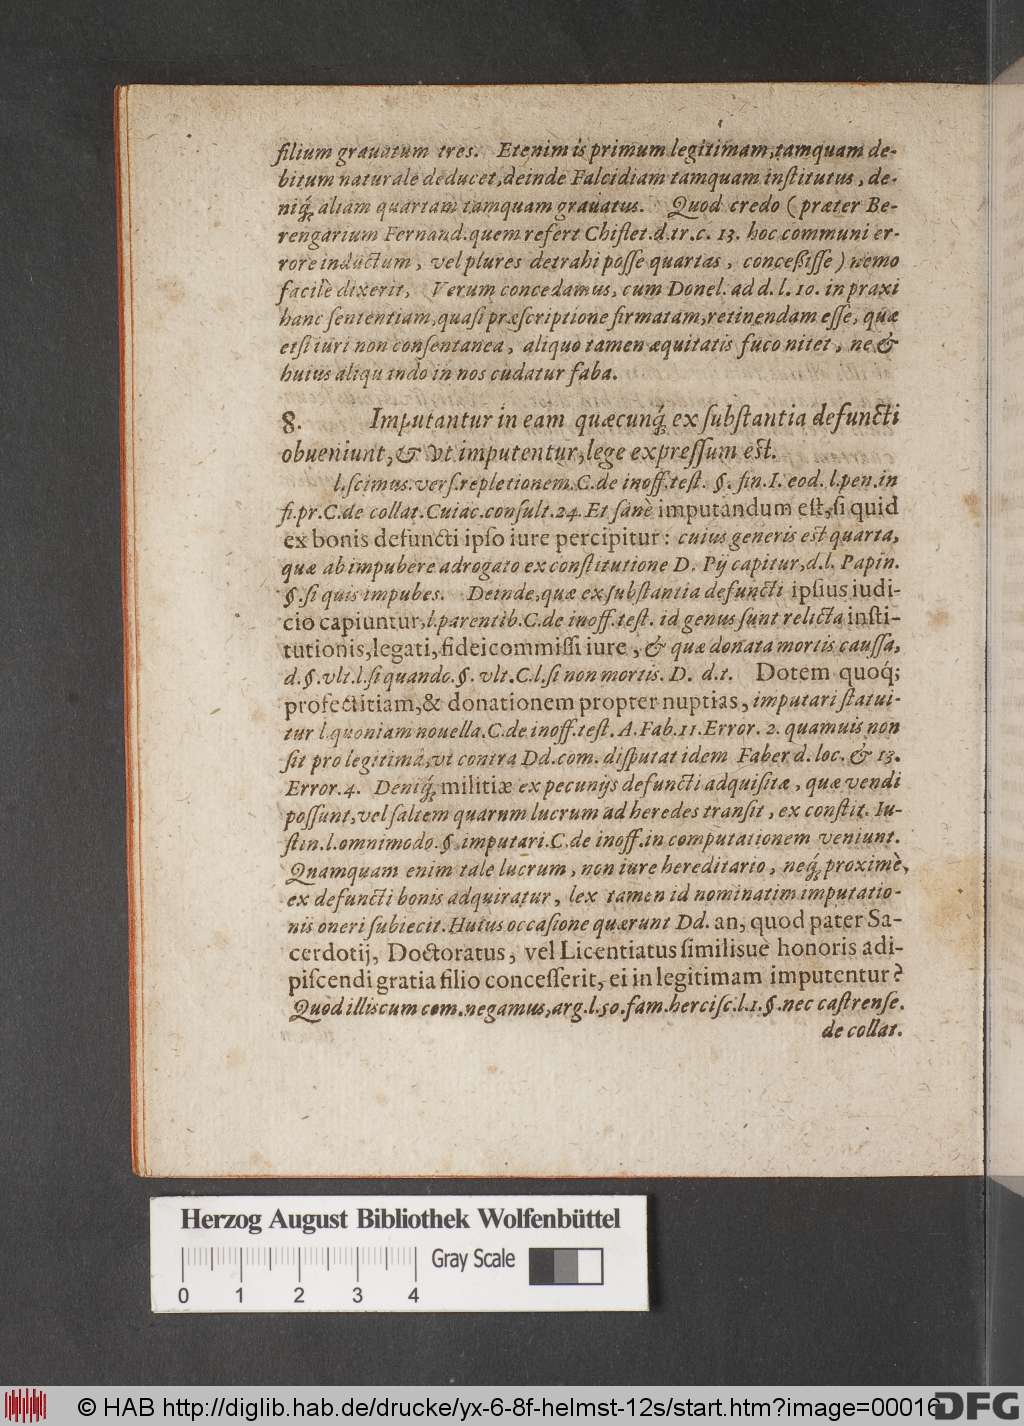 filium grauatum tres. Etenim is primum legitimam, tamquam de-
bitum naturale deducet, deinde Falcidiam tamquam institutus, de-
niq́; aliam quartam tamquam grauatus. Quod credo (præter Be-
rengarium Fernand. quem refert Chiflet. d. tr. c. 13. hoc communi er-
rore inductum, vel plures detrahi posse quartas, concessisse) nemo
facilè dixerit, Verum concedamus, cum Donel. ad d. l. 10. in praxi
hanc sententiam, quasi præscriptione firmatam, retinendam esse, quæ
etsi iuri non consentanea, aliquo tamen æquitatis fuco nitet, ne &
huius aliqu ndo in nos cudatur faba.
8. Imputantur in eam quæcunq́; ex substantia defuncti
obueniunt, & vt imputentur, lege expressum est.
l. scimus. vers. repletionem. C. de inoff. test. §. fin. I. eod. l. pen. in
fi. pr. C. de collat. Cuiac. consult. 24. Et sanè imputandum est, si quid
ex bonis defuncti ipso iure percipitur: cuius generis est quarta,
quæ ab impubere adrogato ex constitutione D. Pij capitur, d. l. Papin.
§. si quis impubes. Deinde, quæ ex substantia defuncti ipsius iudi-
cio capiuntur, l. parentib. C. de inoff. test. id genus sunt relicta insti-
tutionis, legati, fideicommissi iure, & quæ donata mortis caussa,
d. §. vlt. l. si quando. §. vlt. C. l. si non mortis. D. d. t. Dotem quoq́;
profectitiam, & donationem propter nuptias, imputari statui-
tur l. quoniam nouella. C. de inoff. test. A. Fab. 11. Error. 2. quamuis non
sit pro legitima, vt contra Dd. com. disputat idem Faber d. loc. & 13.
Error. 4. Deniq́; militiæ ex pecunijs defuncti adquisitæ, quæ vendi
possunt, vel saltem quarum lucrum ad heredes transit, ex constit. Iu-
stin. l. omnimodo. §. imputari. C. de inoff. in computationem veniunt.
Quamquam enim tale lucrum, non iure hereditario, neq́; proximè,
ex defuncti bonis adquiratur, lex tamen id nominatim imputatio-
nis oneri subiecit. Huius occasione quærunt Dd. an, quod pater Sa-
cerdotij, Doctoratus, vel Licentiatus similisuè honoris adi-
piscendi gratia filio concesserit, ei in legitimam imputentur?
Quod illis cum com. negamus, arg. l. 50. fam. hercisc. l. 1. §. nec castrense.
de collat.
Herzog August Bibliothek Wolfenbüttel
Gray Scale
0 1 2 3 4
© HAB http://diglib.hab.de/drucke/yx-6-8f-helmst-12s/start.htm?image=00016
DFG